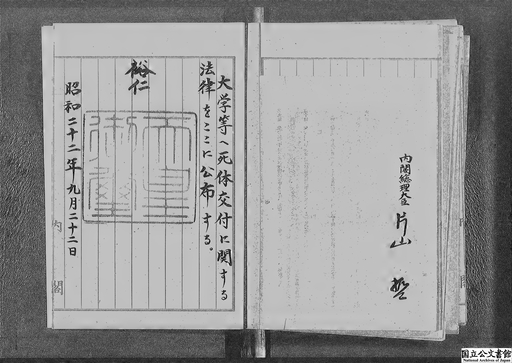 内閣総理大臣 片山 哲
大学等へ死体交付に関する
法律をここに公布する。
裕仁
天皇
御璽
昭和二十二年九月二十二日
内閣
国立公文書館
National Archives of Japan